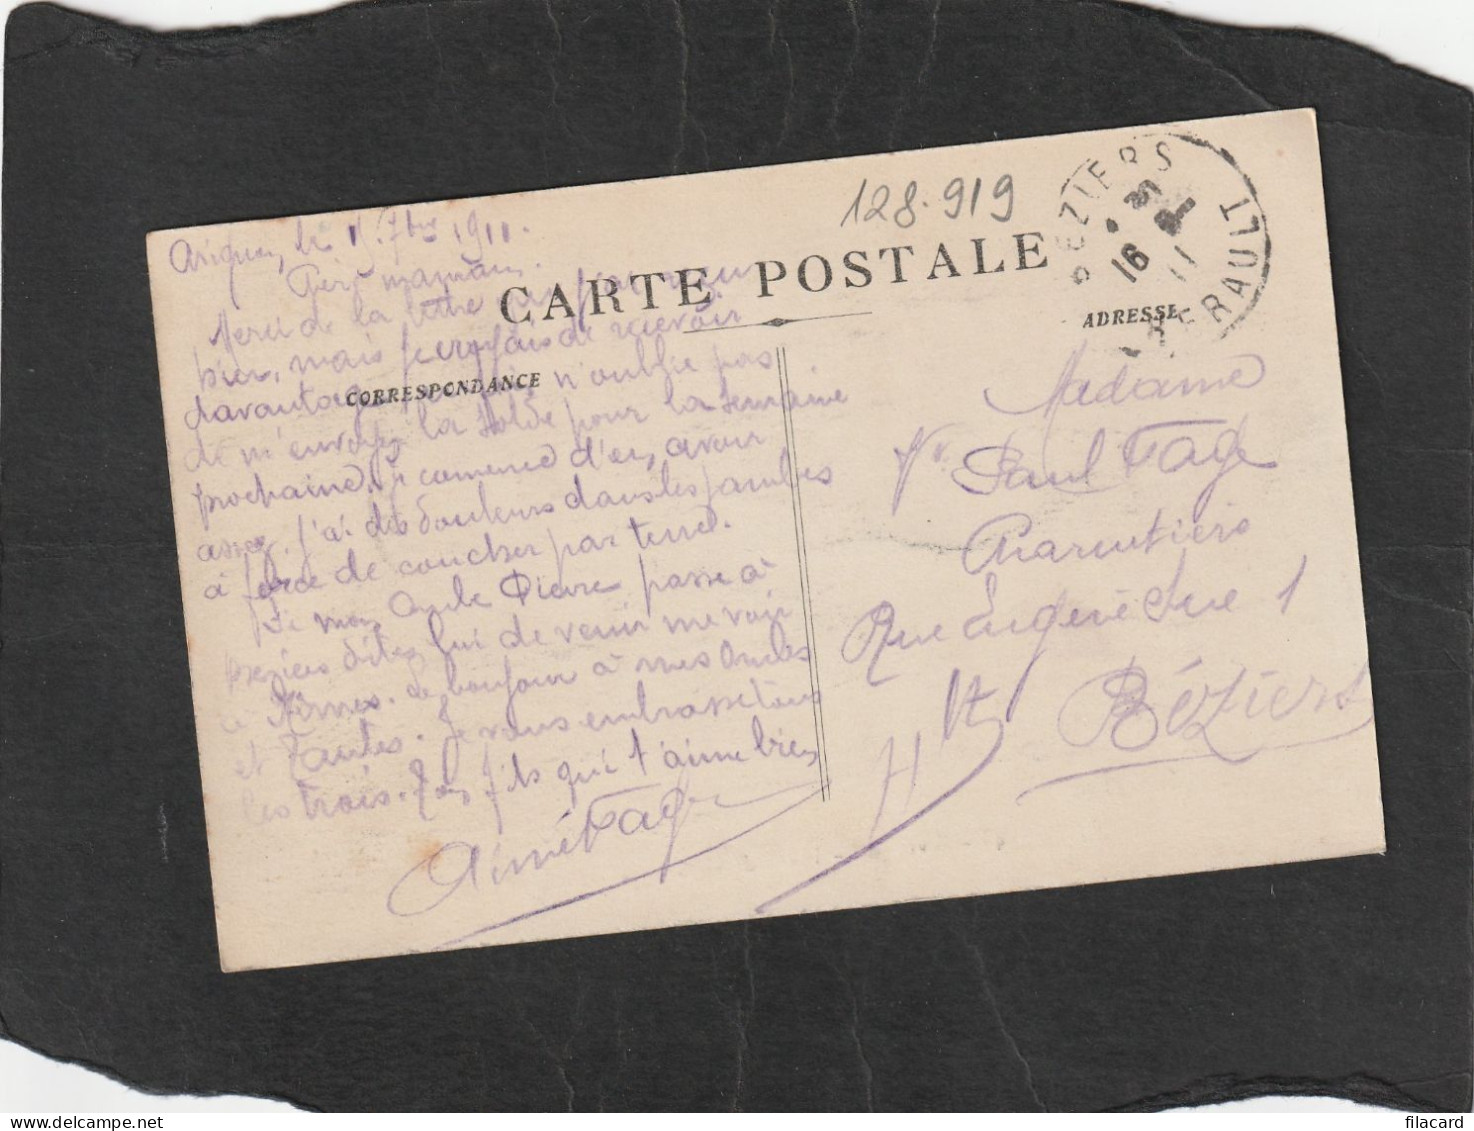 128.919
CARTE POSTALE
CORRESPONDANCE
ADRESSE
BÉZIERS
16
11
HERAULT
le 15 7bre 1911.
maman.
Merci de la lettre
bier, mais je
davantage n'oublie pas
de m'envoyer la solde pour la semaine
prochaine. Je comence d'en avoir
assez. J'ai des douleurs dans les jambes
à force de coucher par terre.
Si mon Oncle Pierre passe à
Beziers dites lui de venir me voir
à Nîmes. Le bonjour à mes Oncles
et Tantes. Je vous embrasse tous
les trois. Ton fils qui t'aime bien
Aimé Fage
Madame
Vve Paul Fage
Charcutière
Rue Eugène Sue 1
Béziers
Hlt
filacard.com